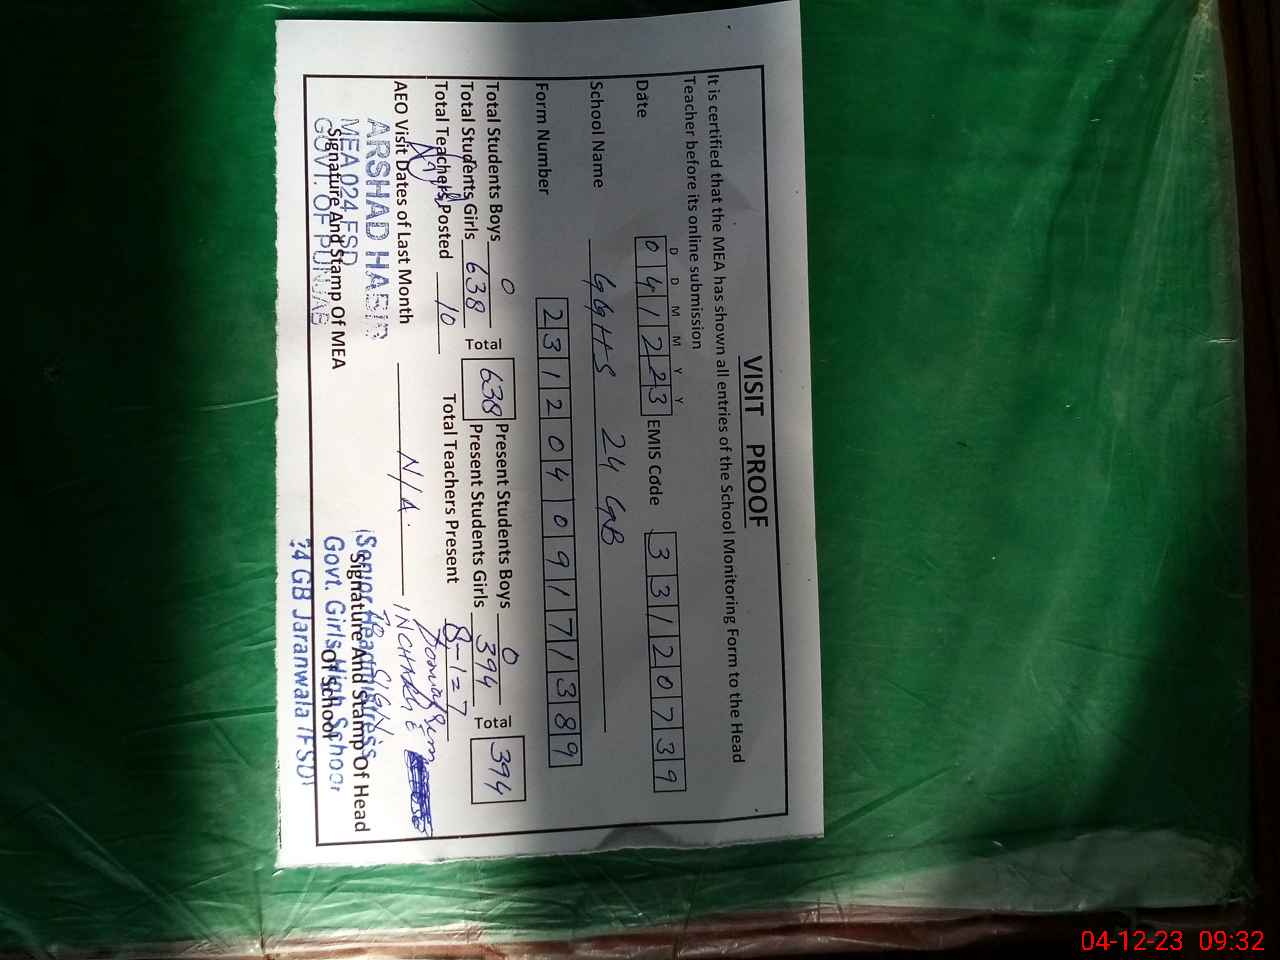 VISIT PROOF
It is certified that the MEA has shown all entries of the School Monitoring Form to the Head
Teacher before its online submission
D D M M Y Y
Date 0 4 1 2 2 3 EMIS Code 3 3 1 2 0 7 3 9
School Name GGHS 24 GB
Form Number 2 3 1 2 0 4 0 9 1 7 1 3 8 9
Total Students Boys 0 Total 638 Present Students Boys 0 Total 394
Total Students Girls 638 Present Students Girls 394
Total Teachers Posted 10 Total Teachers Present 8-1=7
AEO Visit Dates of Last Month N/A. INCHARGE
ARSHAD HABIB
MEA 024 FSD
GOVT. OF PUNJAB
Signature And Stamp Of MEA
Senior Headmistress
Govt. Girls High School
24 GB Jaranwala (FSD)
TO SIGN
Signature And Stamp Of Head
Of School
04-12-23 09:32